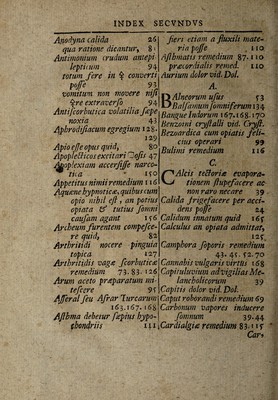 INDEX SECVNDVS
Anodyna calida 26
qua ratione dicantur, 81
Antimonium crudum antepi
lepticum 94
totum fere in ☿ converti
posse 93
vomitum non movere nisi
☿re extraverso 94
Antiscorbutica volatilia sæpe
noxia 41
Aphrodisiacum egregium 128.
129
Apio esse opus quid, 80
Apoplecticos excitari osi 47
Apoplexiam accersisse narco-
tica 450
Appetitus nimii remedium 116
Aquæne hypnoticæ, quibus cum
opio nihil est, an potius
opiata & tutius somni
causam agant 156
Archeum furentem compesce-
re quid, 82
Arthritidi nocere pinguia
topica 127
Arthritidis vagæ scorbuticæ
remedium 73. 83. 126
Arum aceto præparatum mi-
tescere 95
Asseral seu Asrar Turcarum
163. 167. 168
Asthma debetur sæpius hypo-
chondriis 111
fieri etiam a fluxili mate-
ria posse 110
Asthmatis remedium 87. 110
præcordialis remed. 110
Aurium dolor vid. Dol.
A.
Balneorum usus 53
Balsamum somniferum 134
Bangue Indorum 167. 168. 170
Benzoini crystalli vid. Cryst.
Bezoardica cum opiatis feli-
cius operari 99
Bulimi remedium 116
C.
Calcis tectoria evapora-
tionem stupefacere ac
non raro necare 39
Calida frigefacere per acci-
dens posse 24
Calidum innatum quid 165
Calculus an opiata admittat,
125
Camphora soporis remedium
43. 45. 52. 70
Cannabis vulgaris virtus 168
Capitiluvium ad vigilias Me-
lancholicorum 39
Capitis dolor vid. Dol.
Caput roborandi remedium 69
Carbonum vapores inducere
somnum 39. 44
Cardialgiæ remedium 83. 115
Car-